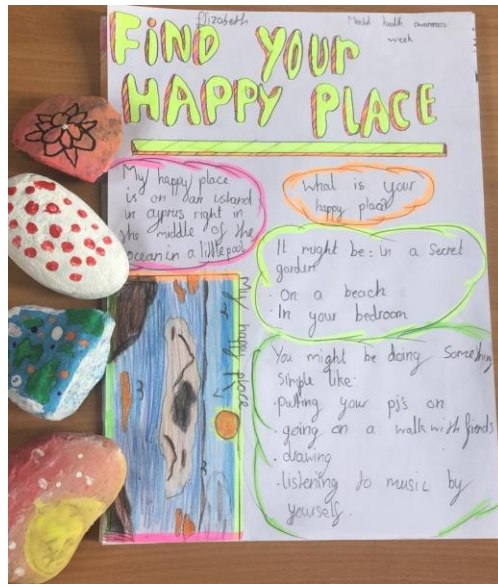 Elizabeth
Mental health awareness
week
FIND YOUR
HAPPY PLACE
My happy place
is on an island
in cyprus right in
the middle of the
ocean in a little pool
What is your
happy place
It might be: in a secret
garden
· On a beach
In your bedroom
My happy place
You might be doing something
simple like:
· putting your pj's on
· going on a walk with friends
· drawing
· listening to music by
yourself.